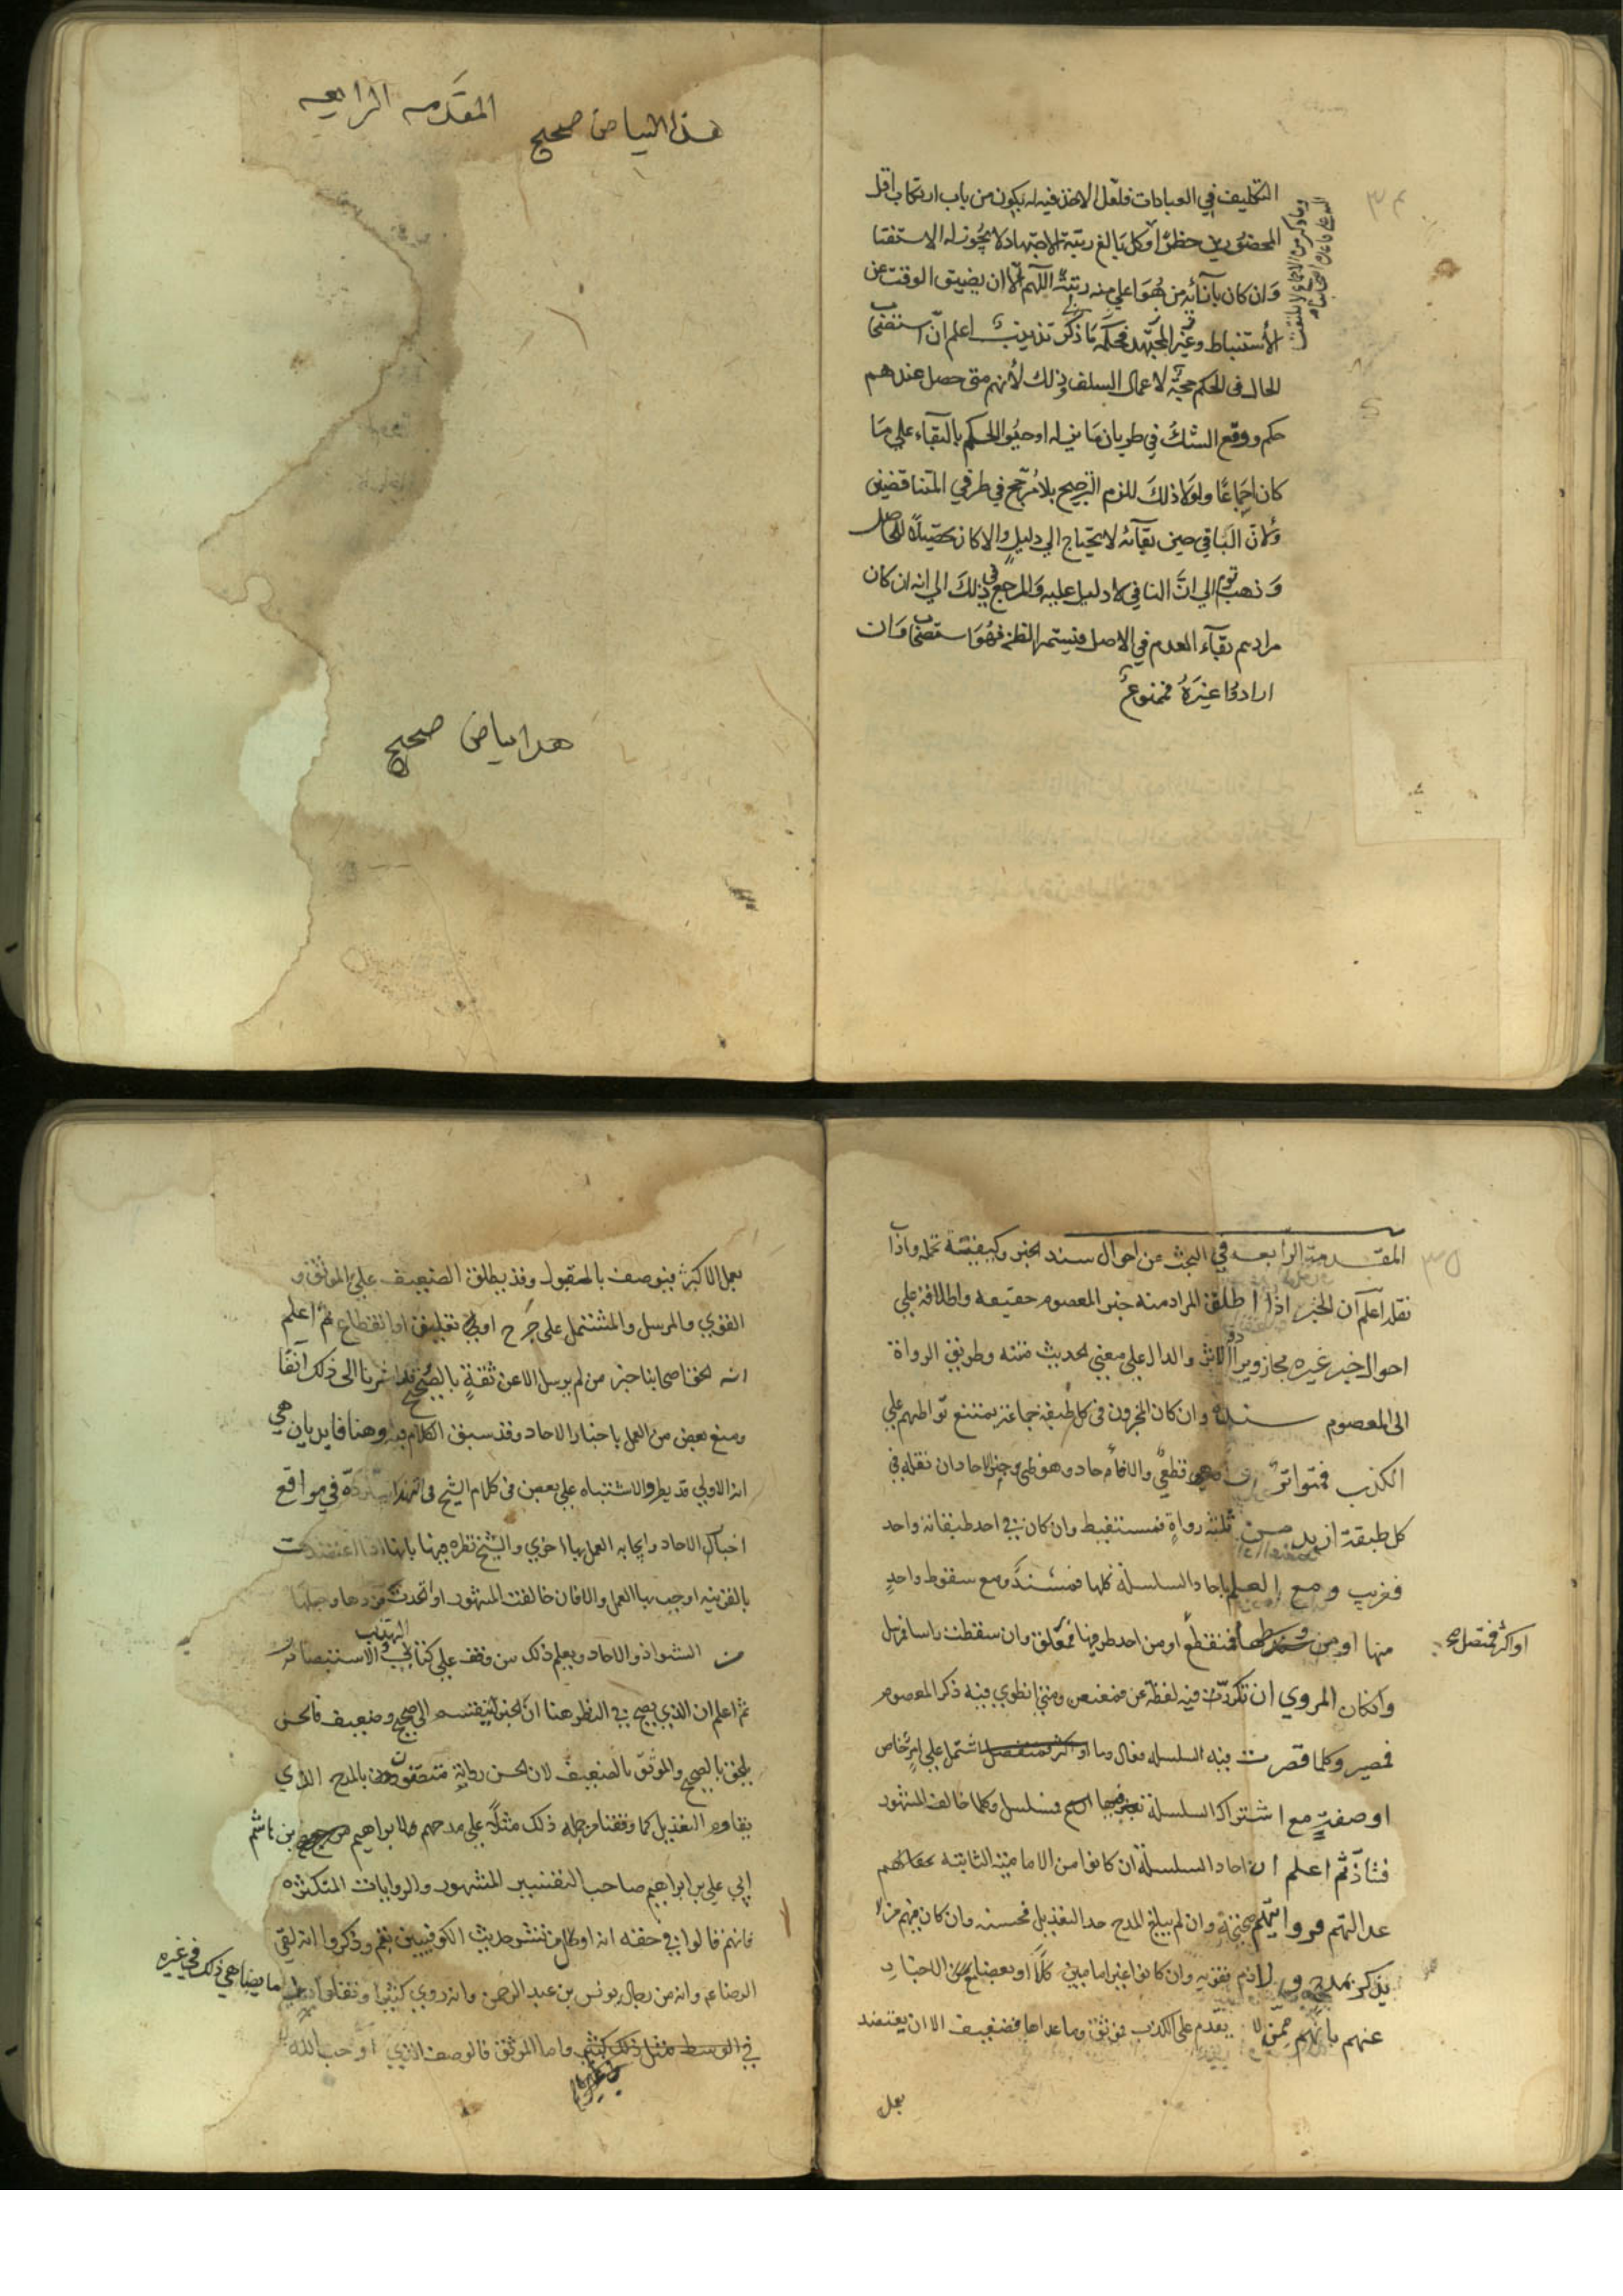 ٣٤
التكليف في العبادات فلعل الاخذ فيه له يكون من باب ارتكاب اقل
المحضورين حظرًا وكل بالغ رتبة الاجتهاد لا يجوز له الاستفتا
وان كان بآنائه من هو اعلي منه رتبة اللهم الا ان يضيق الوقت عن
الاستنباط وغير المجتهد فحكمه ما ذكر تذنيب اعلم ان استصحاب
الحال في الحكم حجة لاعمال السلف وذلك لأنهم متى حصل عندهم
حكم ووقع الشك في طريان ما يزيله اوجبوا الحكم بالبقاء علي ما
كان اجماعًا ولولا ذلك للزم الترجيح بلا مرجح في طرفي المتناقضين
ولان الباقي حين بقآئه لا يحتاج الي دليل والا كان تحصيلاً للحاصل
وذهب قوم الي ان النافي لا دليل عليه والمرجع في ذلك الي انه ان كان
مرادهم بقآء العدم في الاصل فيستمر الظن فهو استصحاب وان
ارادوا غيره فممنوع
المقدمه الرابعه
هذا البياض صحيح
هذا بياض صحيح
٣٥
المقدمة الرابعه في البحث عن احوال سند الخبر وكيفيته تحمله واذا
نقله اعلم ان الخبر اذا اطلق المراد منه خبر المعصوم حقيقه واطلاقه علي
احوال خبر غيره مجاز ويرادف الاثر والدال علي معني الحديث متنه وطريق الرواة
الى المعصوم سنده وان كان المخبرون في كل طبقه جماعة يمتنع تواطيهم علي
الكذب فمتواتر قطعي والا فآحاد وهو ظني وخبر الاحاد ان نقله في
كل طبقة ازيد من ثلثة رواة فمستفيض وان كان في احد طبقاته واحد
فغريب ومع العلم باحاد السلسلة كلها فمسند ومع سقوط واحد
منها او من وسطها فمنقطع او من احد طرفيها فمعلق وان سقطت باسرها فمرسل
او اكثر فمتصل صح
وان كان المروي ان تكررت فيه لفظة عن فمعنعن ومتي انطوي فيه ذكر المعصوم
فمضمر وكلما قصرت فيه السلسله فعال وما اشتمل علي امر خاص
او صفة مع اشتراك السلسلة فمسلسل وكلما خالف المشهور
فشاذ ثم اعلم ان احاد السلسلة ان كانوا من الاماميه الثابته
عدالتهم فروايتهم صحيحة وان لم يبلغ المدح حد التعديل فحسنه وان كان فيهم من لا
يذكر بمدح ولا ذم فقويه وان كانوا غير امامين كلًا او بعضًا مع
عنهم بانهم ممن لا يقدم علي الكذب فموثق وما عداها فضعيف الا ان يعتضد
بعل
بعمل الاكثر فيوصف بالمقبول وقد يطلق الضعيف علي الموثق و
القوي والمرسل والمشتمل على جرح او تعليق او انقطاع ثم اعلم
انه الحق اصحابنا خبر من لم يرسل الا عن ثقة بالصحيح وقد اشرنا الى ذلك آنفًا
ومنع بعض من العمل باخبار الاحاد وقد سبق الكلام فيه وهنا فايدتان هي
ان الاولي قد يطرو الاشتباه علي بعض في كلام الشيخ في في مواقع
اخبار الاحاد وايجابه العمل بها اخري والشيخ نظره فيها بانها اذا اعتضدت
بالقرينه اوجب بها العمل والا فان خالفت المشهور
من الشواذ والاحاد ويعلم ذلك من وقف علي كتابي التهذيب والاستبصار
ثم اعلم ان الذي يصح في النظر هنا ان الخبر ينقسم الي صحيح وضعيف فالحسن
يلحق بالصحيح والموثق بالضعيف لان الحسن رواته متصفون بالمدح الذي
يقاوم التعديل كما وقفنا من جملة ذلك مثلًا علي مدحهم لابراهيم بن هاشم
ابي علي بن ابراهيم صاحب التفسير المشهور والروايات المتكثره
فانهم قالوا في حقه انه اول من نشر حديث الكوفيين بقم وذكروا انه لقي
الرضا عم وانه من رجال يونس بن عبد الرحمن وانه روي كثيرا
ما يضاهي ذلك في غيره
في الوسط مثل ذلك كثير واما الموثق فالوصف الذي اوجب الله